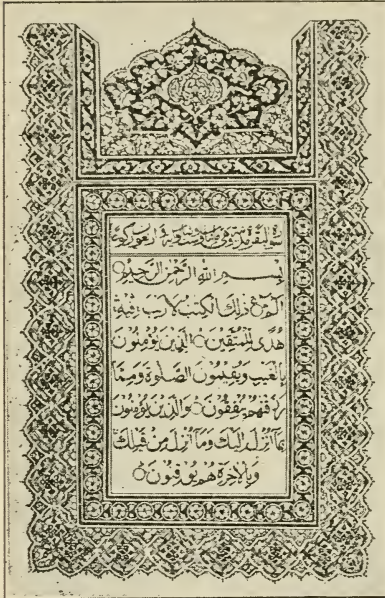 سورة البقرة وهى مائتان وست وثمانون اية ركوعا
بسم الله الرحمن الرحيم
الم ذلك الكتب لا ريب فيه
هدى للمتقين الذين يؤمنون
بالغيب ويقيمون الصلوة ومما
رزقنهم ينفقون والذين يؤمنون
بما انزل اليك وما انزل من قبلك
وبالاخرة هم يوقنون